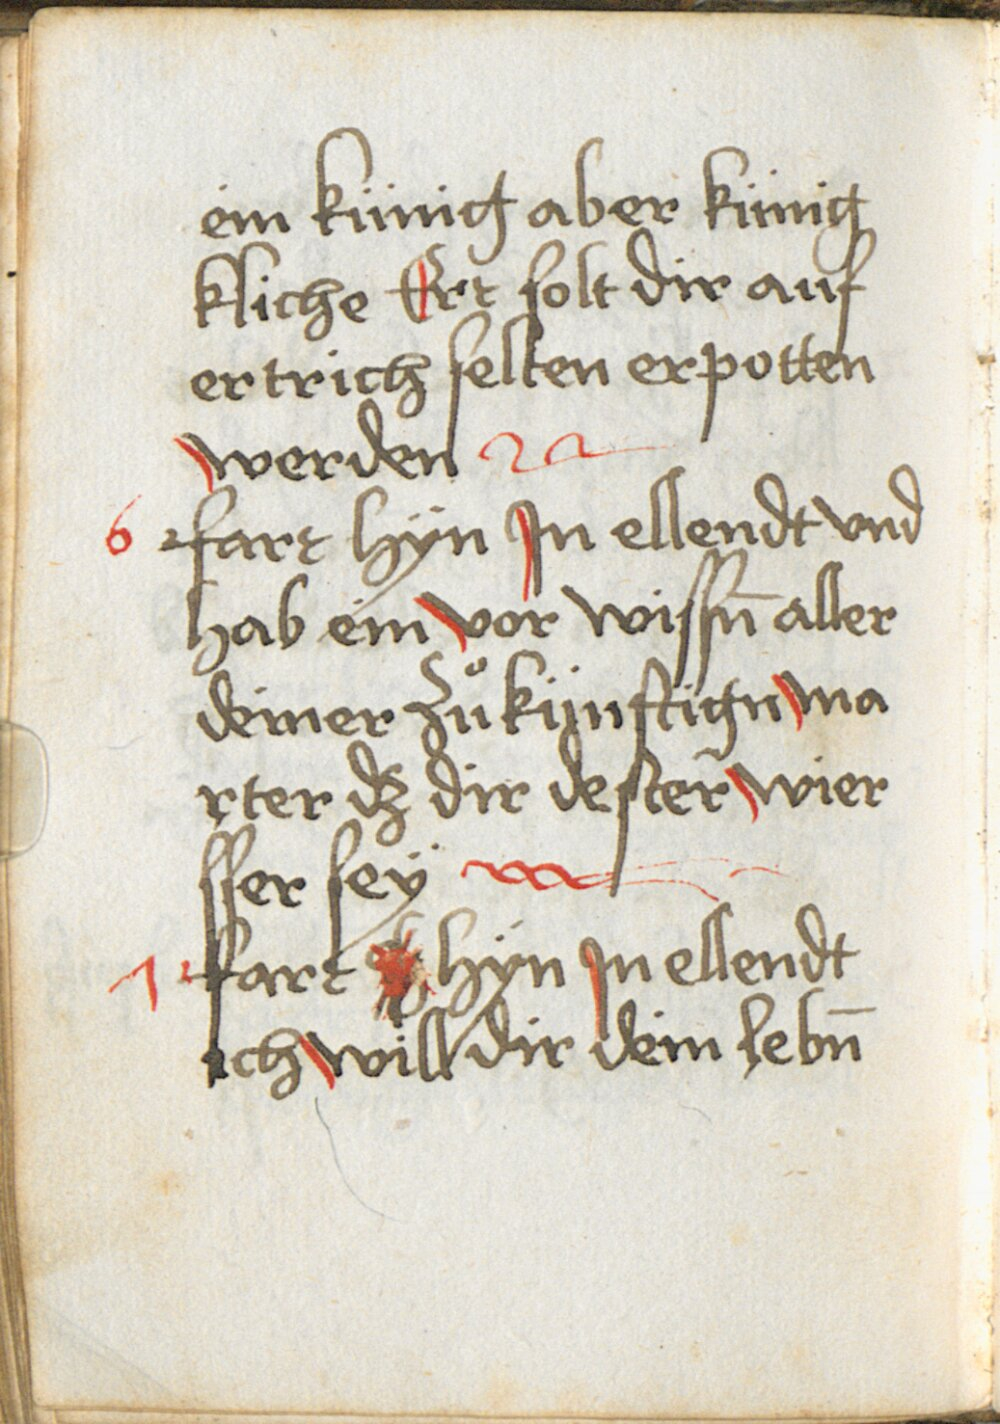 ein künig aber künig
kliche Ert solt dir auf
ertrich selten erpotten
werden
6 fart hÿn Jn ellendt vnd
hab ein vor wissn̄ aller
deiner zuͦ künftign ma
rter dʒ dir dester wier
sser seÿ
7 fart hÿn jn ellendt
ich will dir dein lebn̄